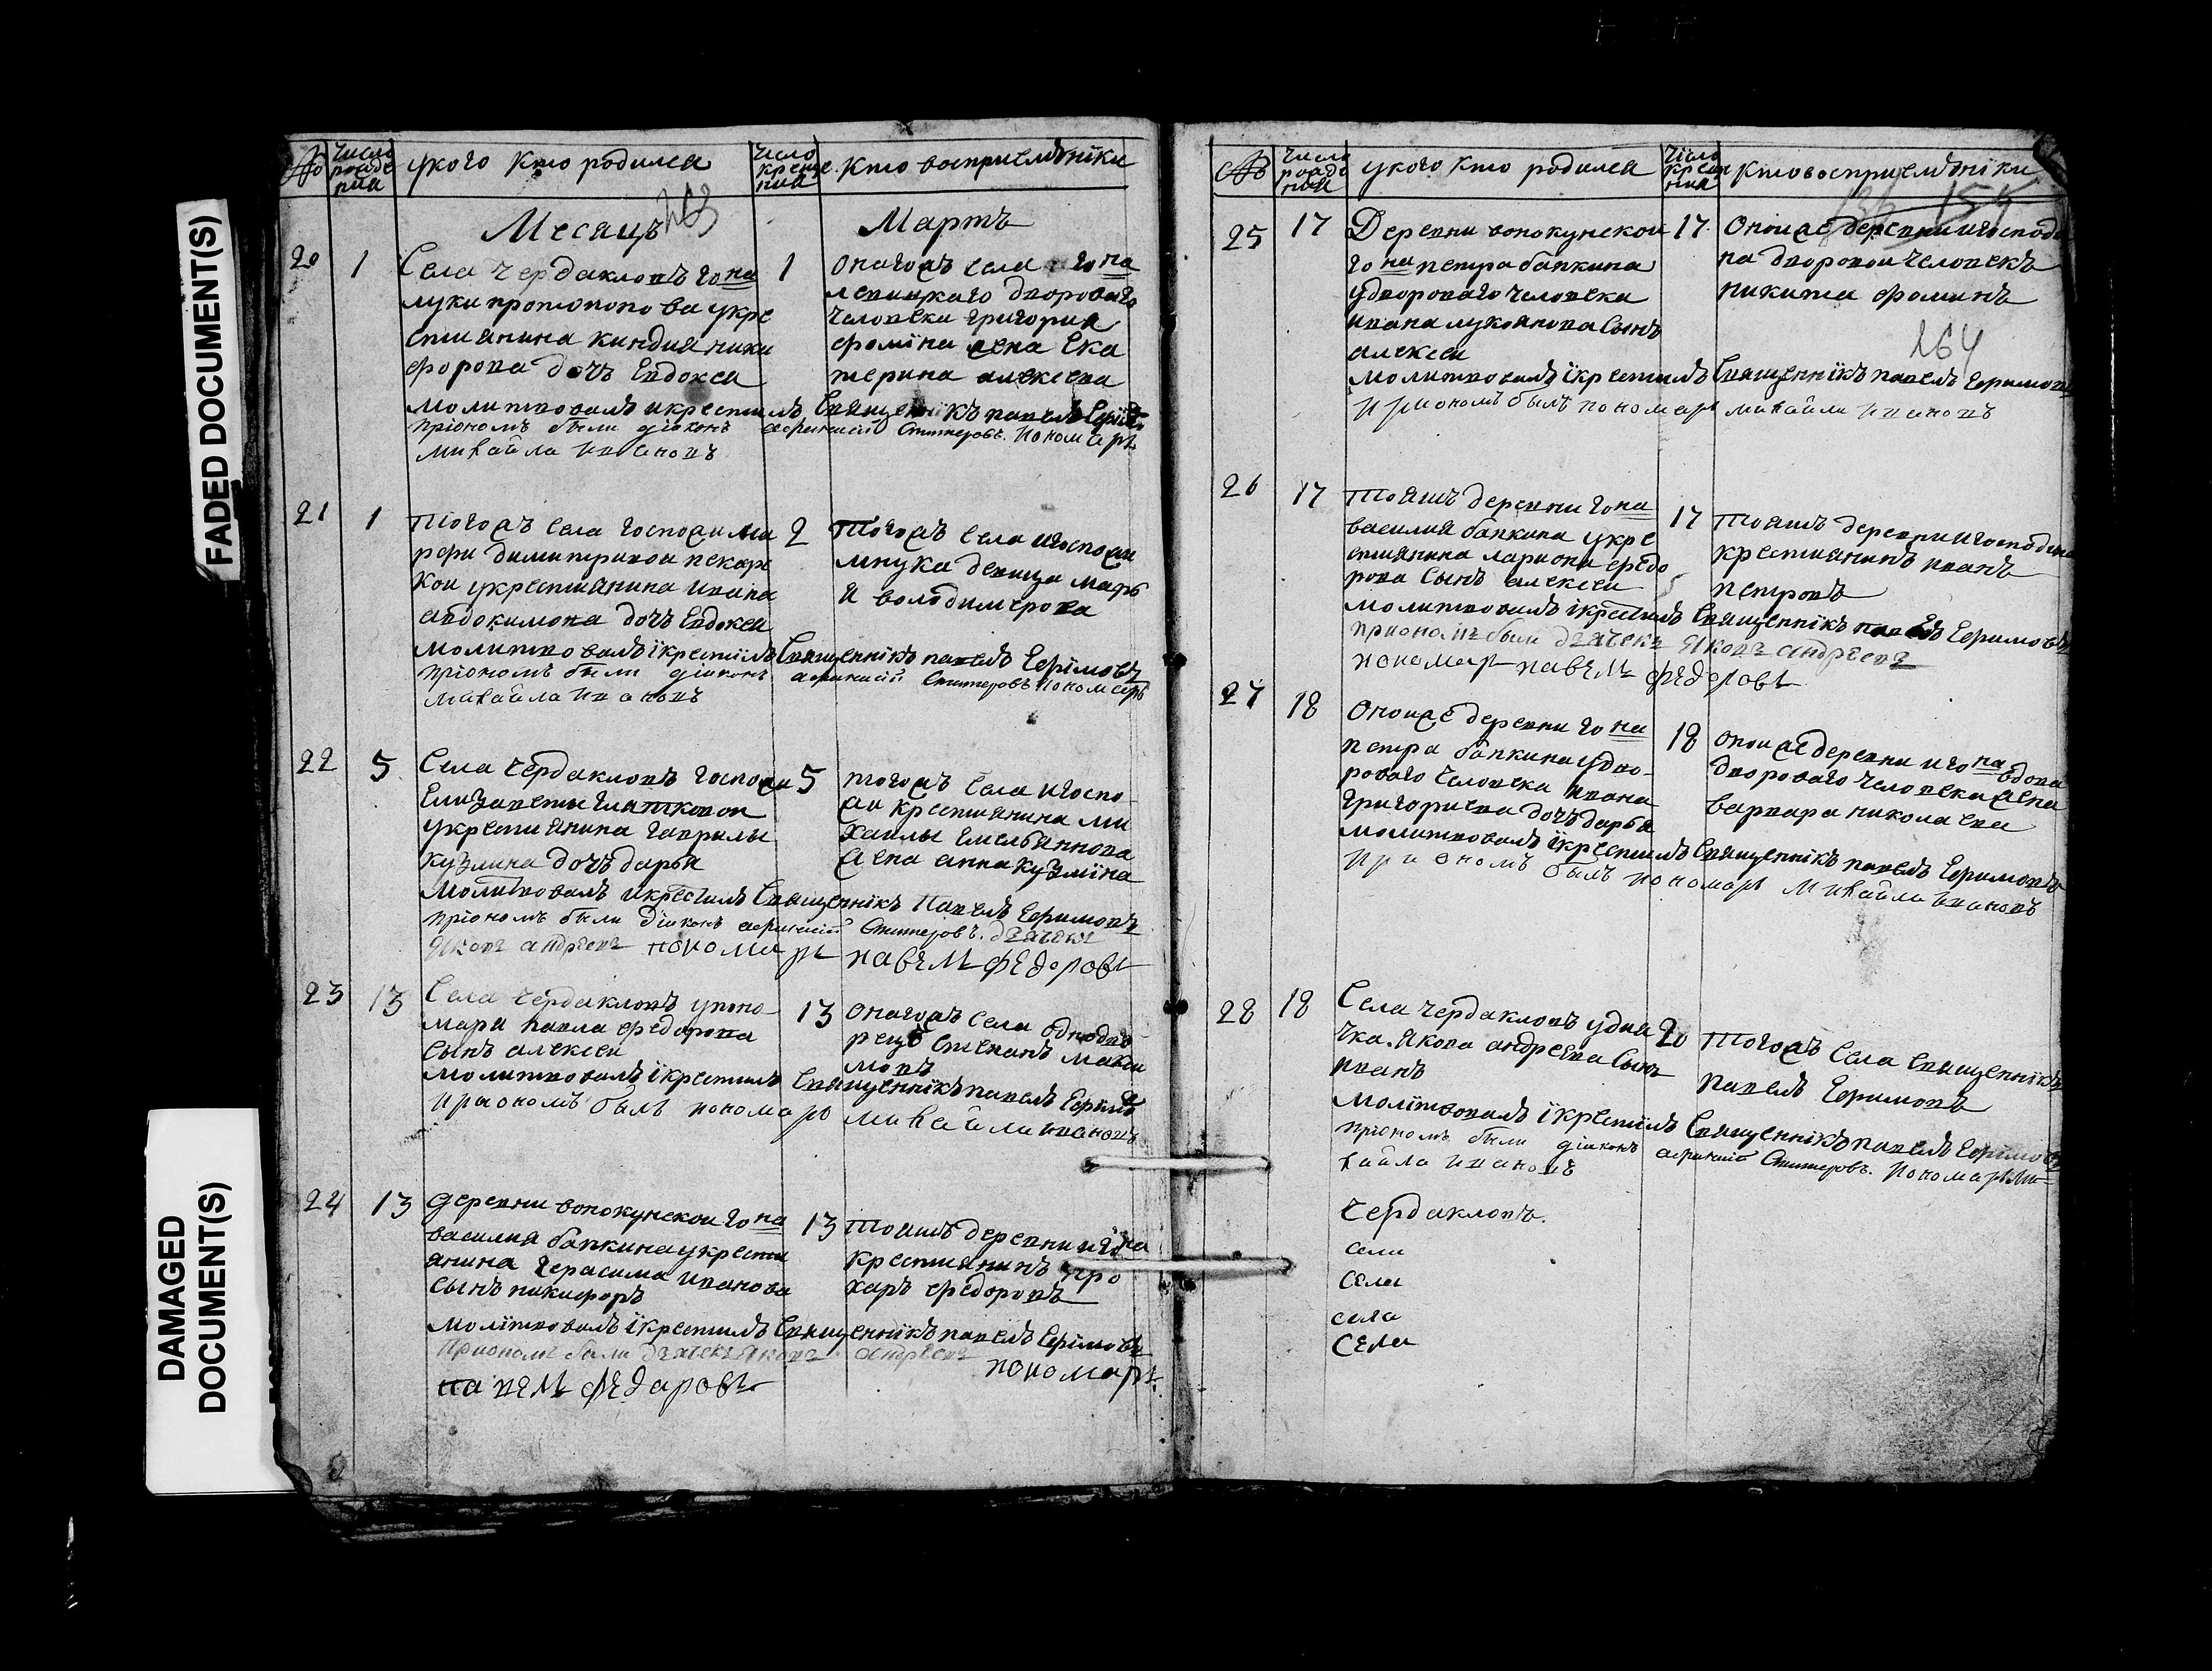 FADED DOCUMENT(S)
DAMAGED
DOCUMENT(S)
№
число рожде ния
у кого кто родился
число креще ния
кто восприемъники
263
Месяцъ Мартъ
20 1 1
Села Чердакловъ гона
луки протопопова укре
стиянина киндия ники
форова дочъ Евдокея
Оногожъ села и гона
левицкаго дворового
человека григория
фомина жена Ека
терина алексеева
молитвовалъ икрестилъ Священникъ павелъ Ефимовъ
приономъ были диаконъ афанасий пономарь
михайла ивановъ
21 1 2
Тогожъ села госпожи ма
рфи димитривои пекарс
кои укрестиянина ивана
авдокимова дочъ Евдокея
Тогожъ села игоспожи
внука девица марь
я володимерова
молитвовалъ iкрестилъ Священнiкъ павелъ Ефiмовъ
приономъ были диаконъ афанасий пономарь
михайла ивановъ
22 5 5
Села Чердакловъ госпожи
Елизаветы
укрестиянина гаврилы
кузмина дочъ дарья
тогожъ села игоспо
жи крестиянина ми
хаилы Емельяннова
жена анна кузмiна
молитвовалъ икрестилъ Священнiкъ Павелъ Ефимовъ
приономъ были диаконъ афанасий дьячекъ
Яковъ андреевъ пономарь павелъ федоровъ
23 13 13
Села Чердакловъ упоно
маря павла федорова
сынъ алексеи
Оногожъ села однодво
рецъ степанъ макси
мовъ
молитвовалъ iкрестилъ Священникъ павелъ Ефимовъ
приономъ былъ пономарь михайла ивановъ
24 13 13
деревни вонокунскои гона
василия бапкина укрести
янина герасима иванова
сынъ никифоръ
тояжъ деревни и гона
крестиянинъ про
харъ федоровъ
молiтвовалъ iкрестилъ Священнiкъ павелъ Ефiмовъ
Приономъ были дьячекъ Яковъ андреевъ пономарь
павелъ федаровъ
№
число рожде ния
у кого кто родился
число креще ния
кто восприемъники
136 155
25 17 17
Деревни вонокунскои
гона петра бапкина
удворового человека
ивана лукоянова сынъ
алексеи
Оноижъ деревни игосподи
на дворовои человекъ
никита фоминъ
264
молитвовалъ iкрестилъ Священнiкъ павелъ Ефимовъ
приономъ былъ пономарь михайла ивановъ
26 17 17
тояжъ деревни гона
василия бапкина укре
стиянина лариона федо
рова сынъ алексеи
тояжъ деревни игосподина
крестиянинъ иванъ
петровъ
молитвовалъ iкрестилъ Священнiкъ павелъ Ефимовъ
приономъ были дьячекъ Яковъ андреевъ
пономарь павелъ федоровъ
27 18 18
Оноижъ деревни гона
петра бапкина удво
рового человека ивана
григориева дочъ дарья
оноижъ деревни игона вдова
дворового человека жена
варвара николаева
молитвовалъ iкрестилъ Священнiкъ павелъ Ефимовъ
приономъ былъ пономарь михайла ивановъ
28 18 20
Села Чердакловъ удья
чка Якова андреева сынъ
иванъ
тогожъ села священнiкъ
павелъ Ефимовъ
молiтвовалъ iкрестiлъ Священнiкъ павелъ Ефiмовъ
приономъ были диаконъ афанасий пономарь ми
хайла ивановъ
Чердакловъ.
села
села
села
Села